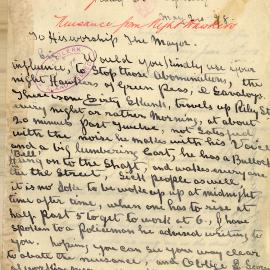 Nuisance from Night Hawkers
May 2nd 98.
To His Worship The Mayor.
Sir, Would you kindly use your
influence, to Stop those Abominations the
night Hawkers of Green Peas, & Saveloys.
There is one travels up Riley St
every night or rather Morning, at about
20 minuts Past Twelve, not Satisfied
with the noise he makes with his Voice
and a big lumbering Cart, he has a Bullock
Bell
Hung on to the Shaft, and wakes everyone
in the Street. Sick people as well,
it is no Joke to be woke up at midnight
time after time, when one has to rise at
half Past 5 to get to work at 6. I have
spoken to a Policeman he advised writing to
you. hoping you can see your way clear
to abate the nuisance, and Oblige